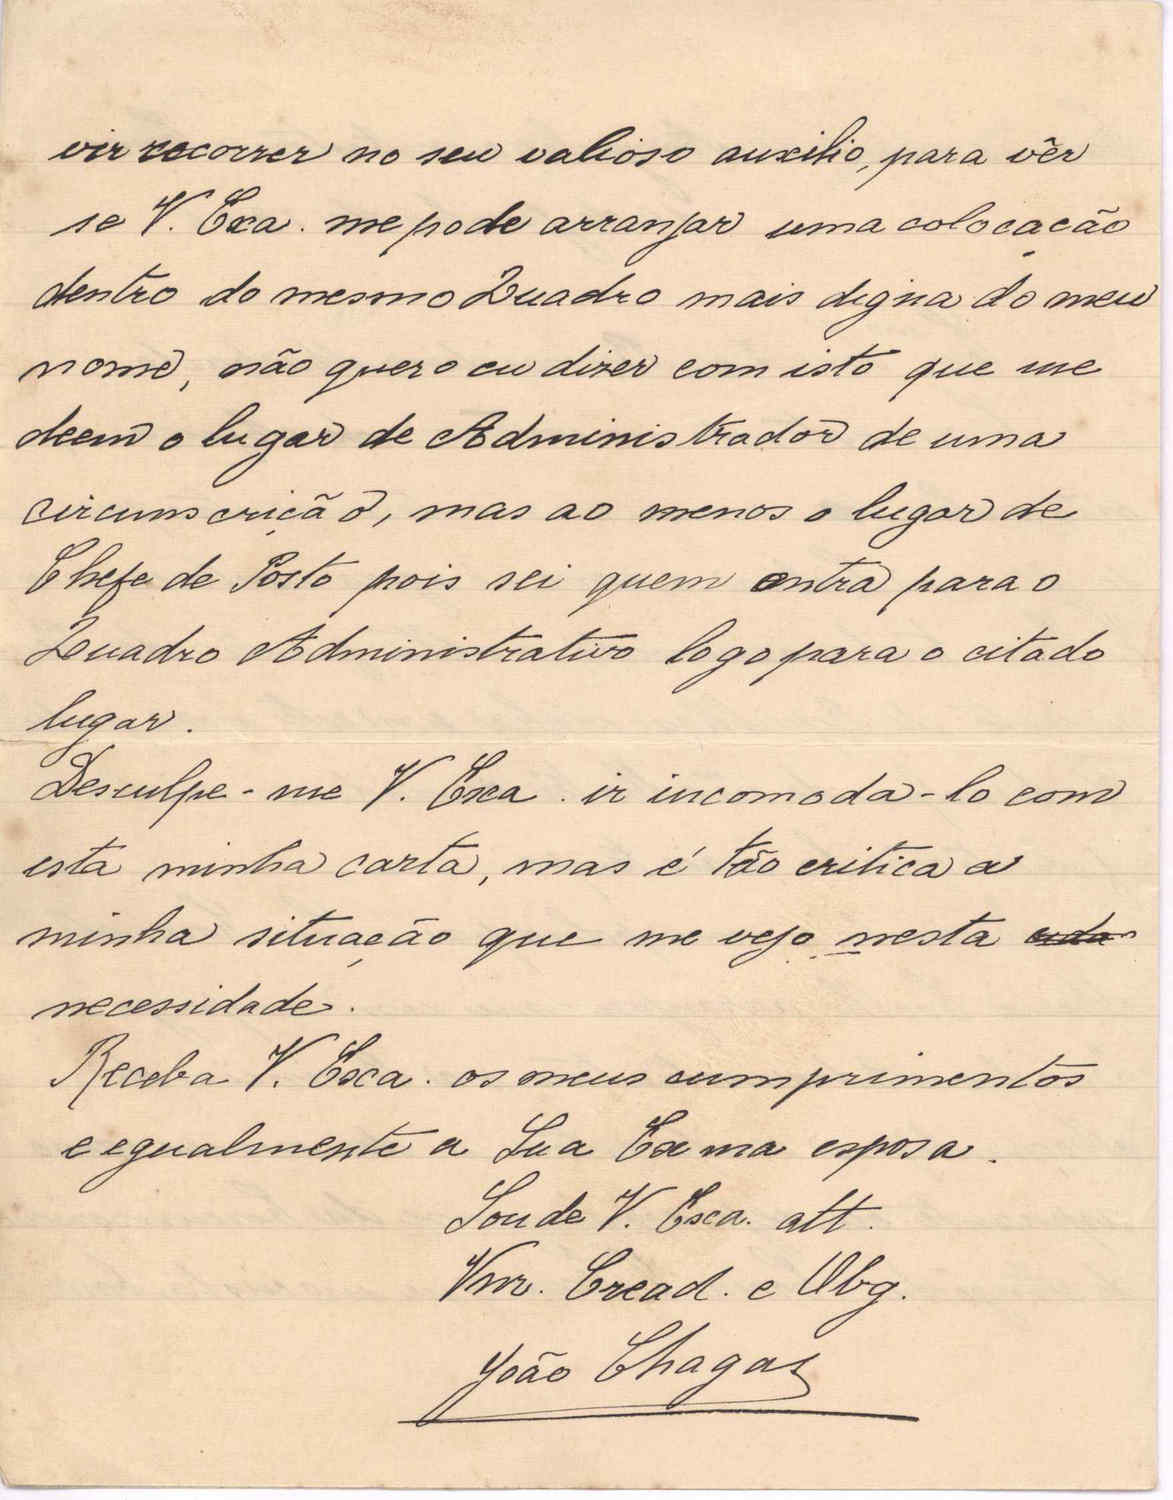 vir recorrer no seu valioso auxilio, para vêr
se V. Exca. me pode arranjar uma colocação
dentro do mesmo Quadro mais digna do meu
nome, não quero eu dizer com isto que me
deem o lugar de Administrador de uma
circunscrição, mas ao menos o lugar de
Chefe de Posto pois sei quem entra para o
Quadro Administrativo logo para o citado
lugar.
Desculpe-me V. Exca. ir incomoda-lo com
esta minha carta, mas é tão critica a
minha situação que me vejo nesta
necessidade.
Receba V. Exca. os meus cumprimentos
e egualmente a Sua Exma esposa.
Sou de V. Exca. att.
Vnr. Cread. e Obg.
João Chagas